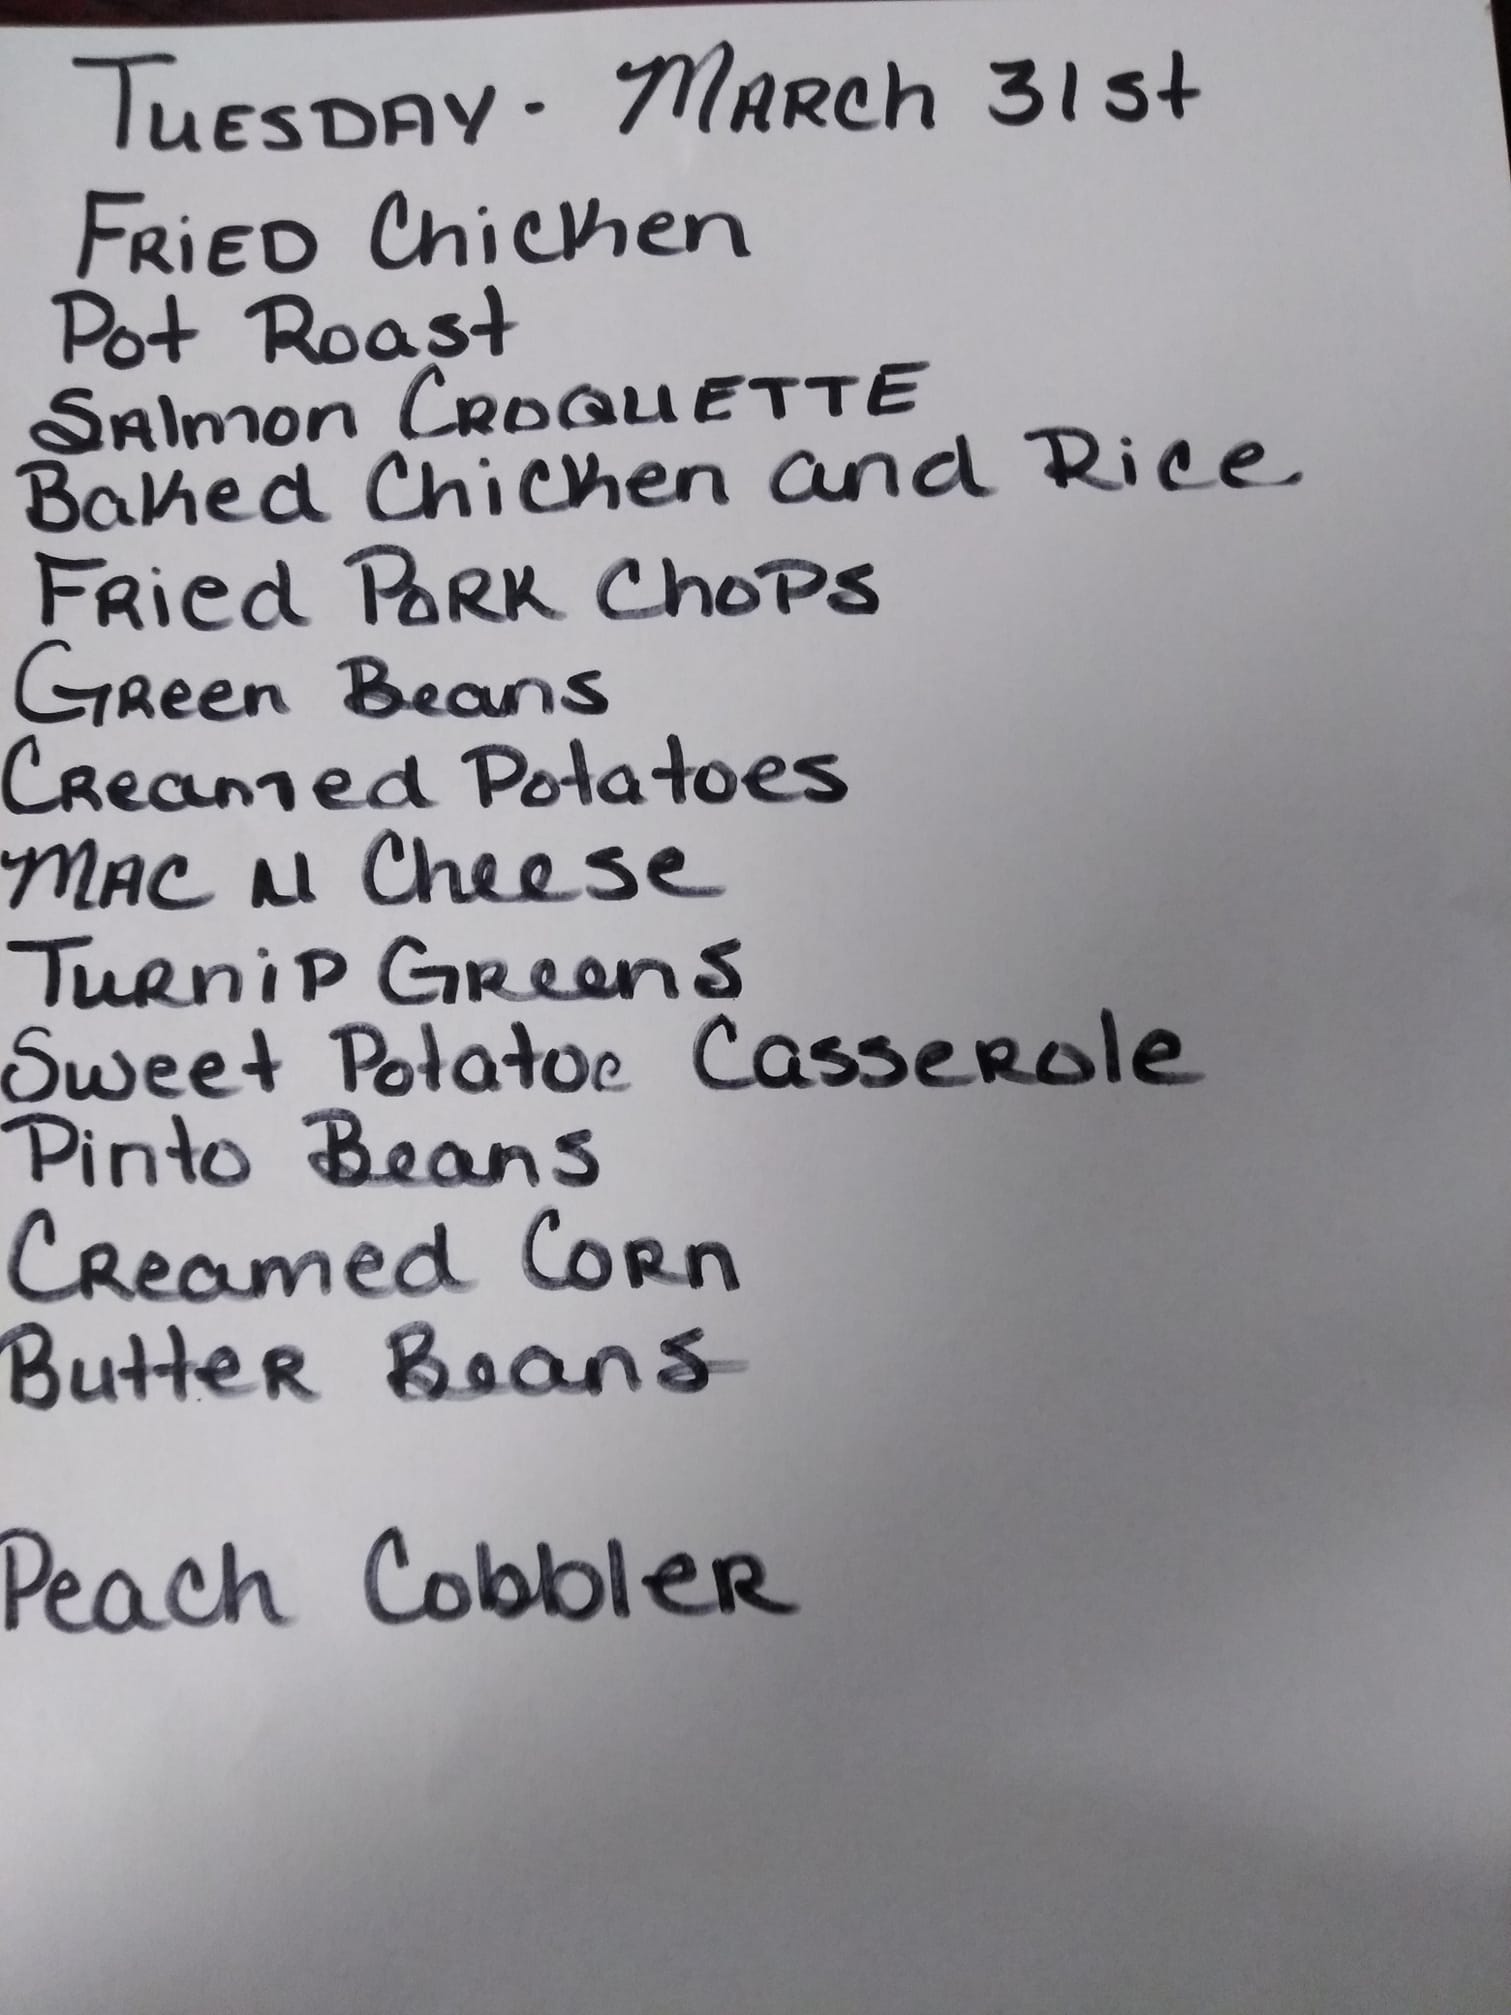 Tuesday - March 31st
Fried Chicken
Pot Roast
Salmon Croquette
Baked Chicken and Rice
Fried Pork Chops
Green Beans
Creamed Potatoes
Mac N Cheese
Turnip Greens
Sweet Potatoe Casserole
Pinto Beans
Creamed Corn
Butter Beans
Peach Cobbler